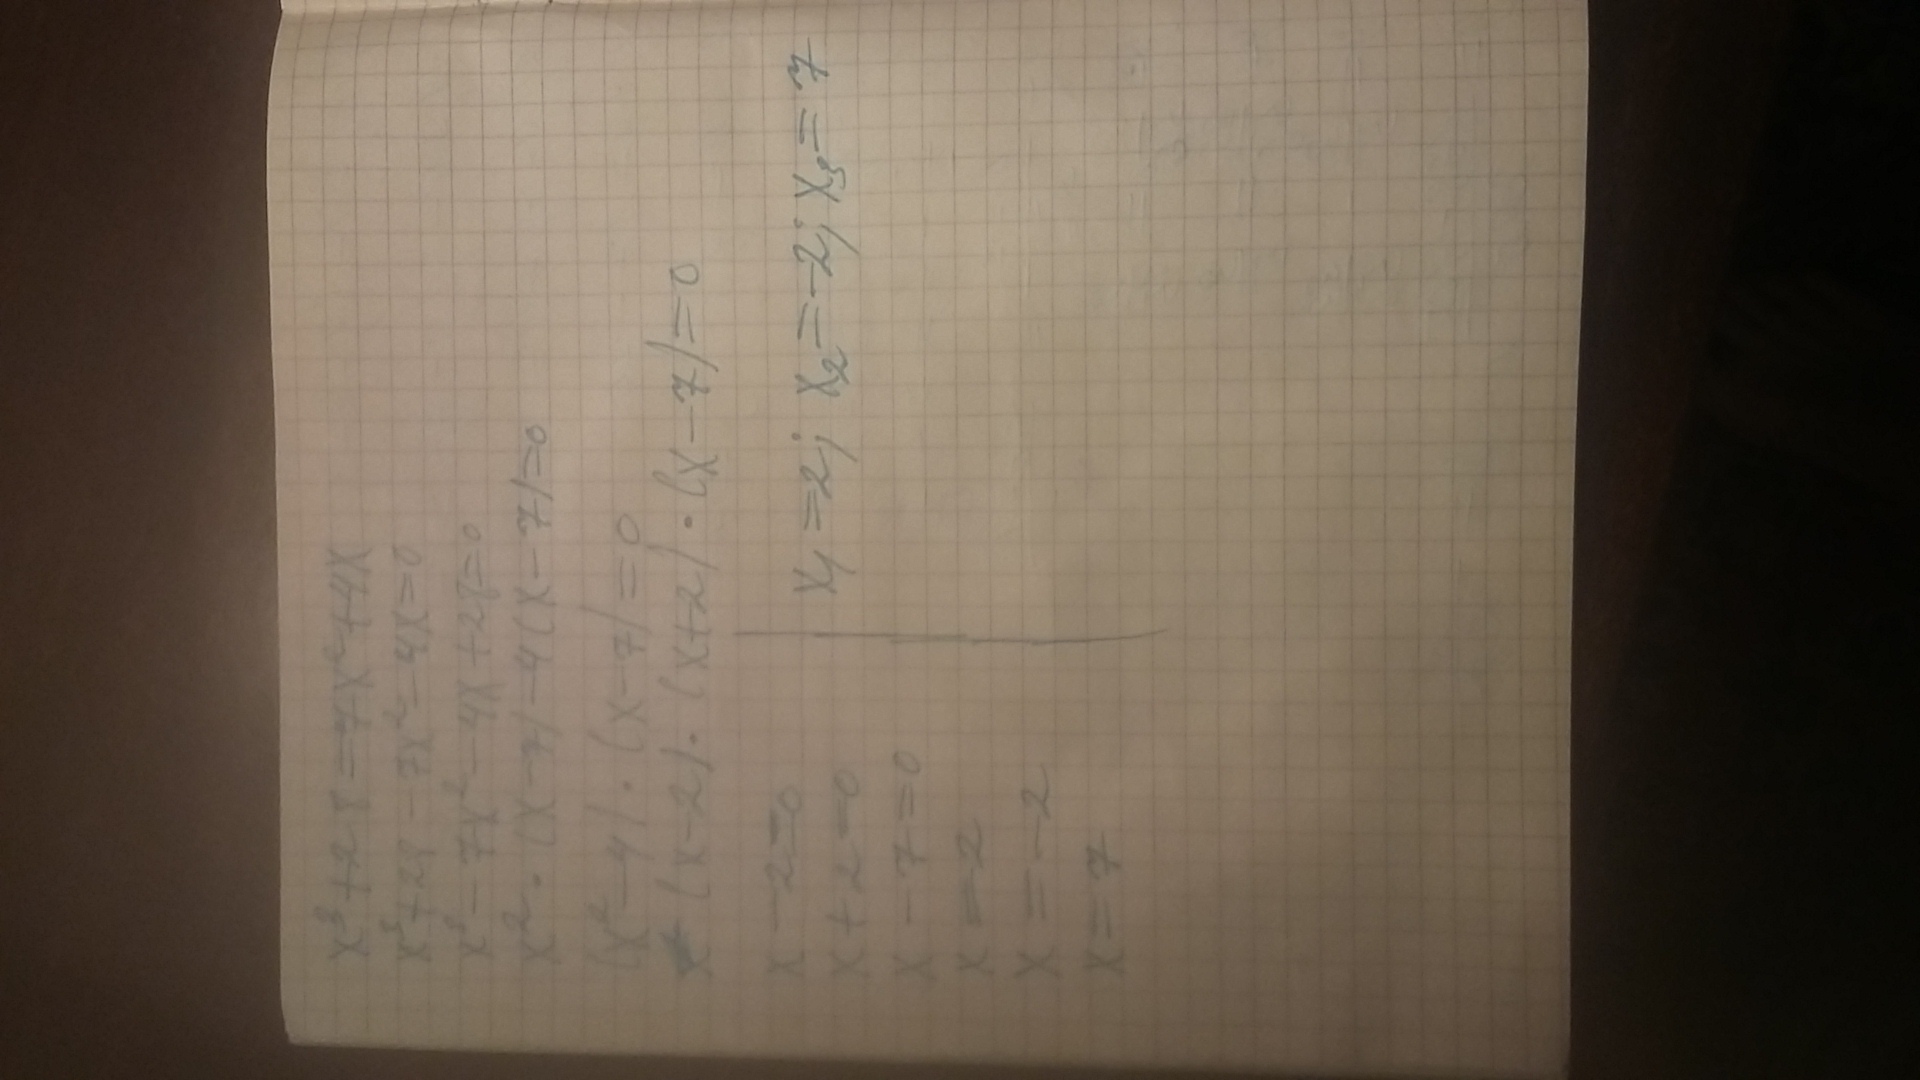 x³+28=7x²+4x
x³+28-7x²-4x=0
x³-7x²-4x+28=0
x²·(x-7)-4(x-7)=0
(x²-4)·(x-7)=0
(x-2)·(x+2)·(x-7)=0
x-2=0
x+2=0
x-7=0
x=2
x=-2
x=7
x₁=2; x₂=-2; x₃=7